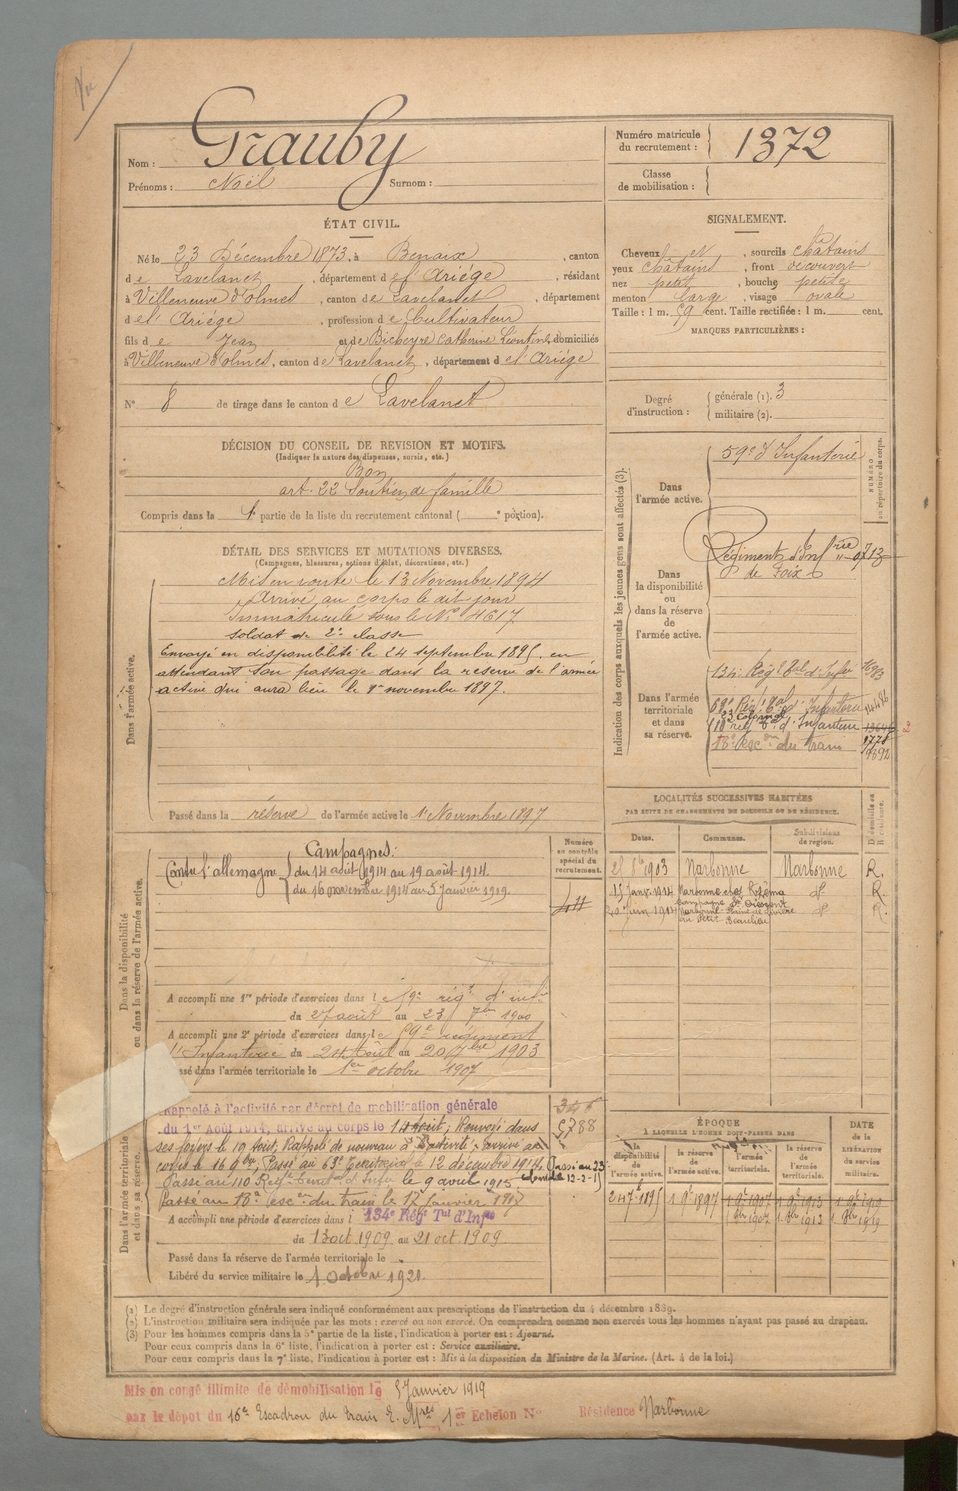 Vu
Nom : Grauby
Prénoms : Noël Surnom :
Numéro matricule du recrutement : 1372
Classe de mobilisation :
ÉTAT CIVIL.
Né le 23 Décembre 1873, à Benaix, canton
de Lavelanet, département de l'Ariége, résidant
à Villeneuve d'Olmes, canton de Lavelanet, département
de l'Ariége, profession de Cultivateur
fils de Jean et de Bicheyre Catherine Léontine, domiciliés
à Villeneuve d'Olmes, canton de Lavelanet, département de l'Ariége
N° 8 de tirage dans le canton de Lavelanet
SIGNALEMENT.
Cheveux et, sourcils châtains
yeux châtains, front découvert
nez petit, bouche petite
menton large, visage ovale
Taille : 1 m. 59 cent. Taille rectifiée : 1 m. cent.
MARQUES PARTICULIÈRES :
Degré d'instruction : générale (1). 3
militaire (2).
DÉCISION DU CONSEIL DE REVISION ET MOTIFS.
(Indiquer la nature des dispenses, sursis, etc.)
Bon
art. 22 Soutien de famille
Compris dans la 1e partie de la liste du recrutement cantonal ( e portion).
DÉTAIL DES SERVICES ET MUTATIONS DIVERSES.
(Campagnes, blessures, actions d'éclat, décorations, etc.)
Dans l'armée active.
Mis en route le 13 Novembre 1894
Arrivé au corps le dit jour
Immatriculé sous le N° 4617
soldat de 2e classe
Envoyé en disponibilité le 24 septembre 1895, en
attendant son passage dans la réserve de l'armée
active qui aura lieu le 1er novembre 1897.
Passé dans la réserve de l'armée active le 1er Novembre 1897
Indication des corps auxquels les jeunes gens sont affectés (3).
NUMÉRO au répertoire du corps.
Dans l'armée active.
59e d'Infanterie
Dans la disponibilité ou dans la réserve de l'armée active.
Régiment d'Infrie 0713
de Foix
Dans l'armée territoriale et dans sa réserve.
134 Régt Tal d'Infie
63e Régt Tal d'Infanterie
23 Colonial
110 reg Tal d'Infanterie
18e Escon du train
LOCALITÉS SUCCESSIVES HABITÉES
PAR SUITE DE CHANGEMENTS DE DOMICILE OU DE RÉSIDENCE.
Dates. Communes. Subdivisions de région. Domicile ou Résidence.
1903 Narbonne Narbonne R.
15 Janv. 1914 Narbonne do R.
Juin 1914 Narbonne do R.
au Petit Beaulieu
Dans la disponibilité ou dans la réserve de l'armée active.
Numéro au contrôle spécial du recrutement.
Campagnes :
Contre l'Allemagne du 14 août 1914 au 19 août 1914.
du 16 novembre 1914 au 5 Janvier 1919.
A accompli une 1re période d'exercices dans le 59e régt d'infie
du 27 août au 23 7bre 1900
A accompli une 2e période d'exercices dans le 59e régiment
d'Infanterie du 24 Août au 20 7bre 1903
Passé dans l'armée territoriale le 1er octobre 1907
Dans l'armée territoriale et dans sa réserve.
Rappelé à l'activité par décret de mobilisation générale
du 1er Août 1914, arrivé au corps le 14 Août, Renvoyé dans
ses foyers le 19 Août, Rappelé de nouveau à l'activité, arrivé au
corps le 16 9bre, Passé au 63e Territorial le 12 décembre 1914. Passé au 23e
colonial le 12-2-15
Passé au 110 Regt Territ d'Infie le 9 avril 1915
Passé au 18e escon du train le 12 Janvier 1917
5788
A accompli une période d'exercices dans l 134e Régt Tal d'Infie
du 13 oct. 1909 au 21 oct. 1909
Passé dans la réserve de l'armée territoriale le
Libéré du service militaire le 1 Octobre 1921.
ÉPOQUE
A LAQUELLE L'HOMME DOIT PASSER DANS
la disponibilité de l'armée active. la réserve de l'armée active. l'armée territoriale. la réserve de l'armée territoriale.
DATE de la LIBÉRATION du service militaire.
24 7e 1895 1 9e 1897 1 9e 1907 1 9e 1913 1 9e 1919
1 8bre 1907 1 8bre 1913 1 8bre 1919
(1) Le degré d'instruction générale sera indiqué conformément aux prescriptions de l'instruction du 4 décembre 1889.
(2) L'instruction militaire sera indiquée par les mots : exercé ou non exercé. On comprendra comme non exercés tous les hommes n'ayant pas passé au drapeau.
(3) Pour les hommes compris dans la 5e partie de la liste, l'indication à porter est : Ajourné.
Pour ceux compris dans la 6e liste, l'indication à porter est : Service auxiliaire.
Pour ceux compris dans la 7e liste, l'indication à porter est : Mis à la disposition du Ministre de la Marine. (Art. 4 de la loi.)
Mis en congé illimité de démobilisation le 5 Janvier 1919
par le dépôt du 16e Escadron du train E. Mres 1er Echelon N° Résidence Narbonne